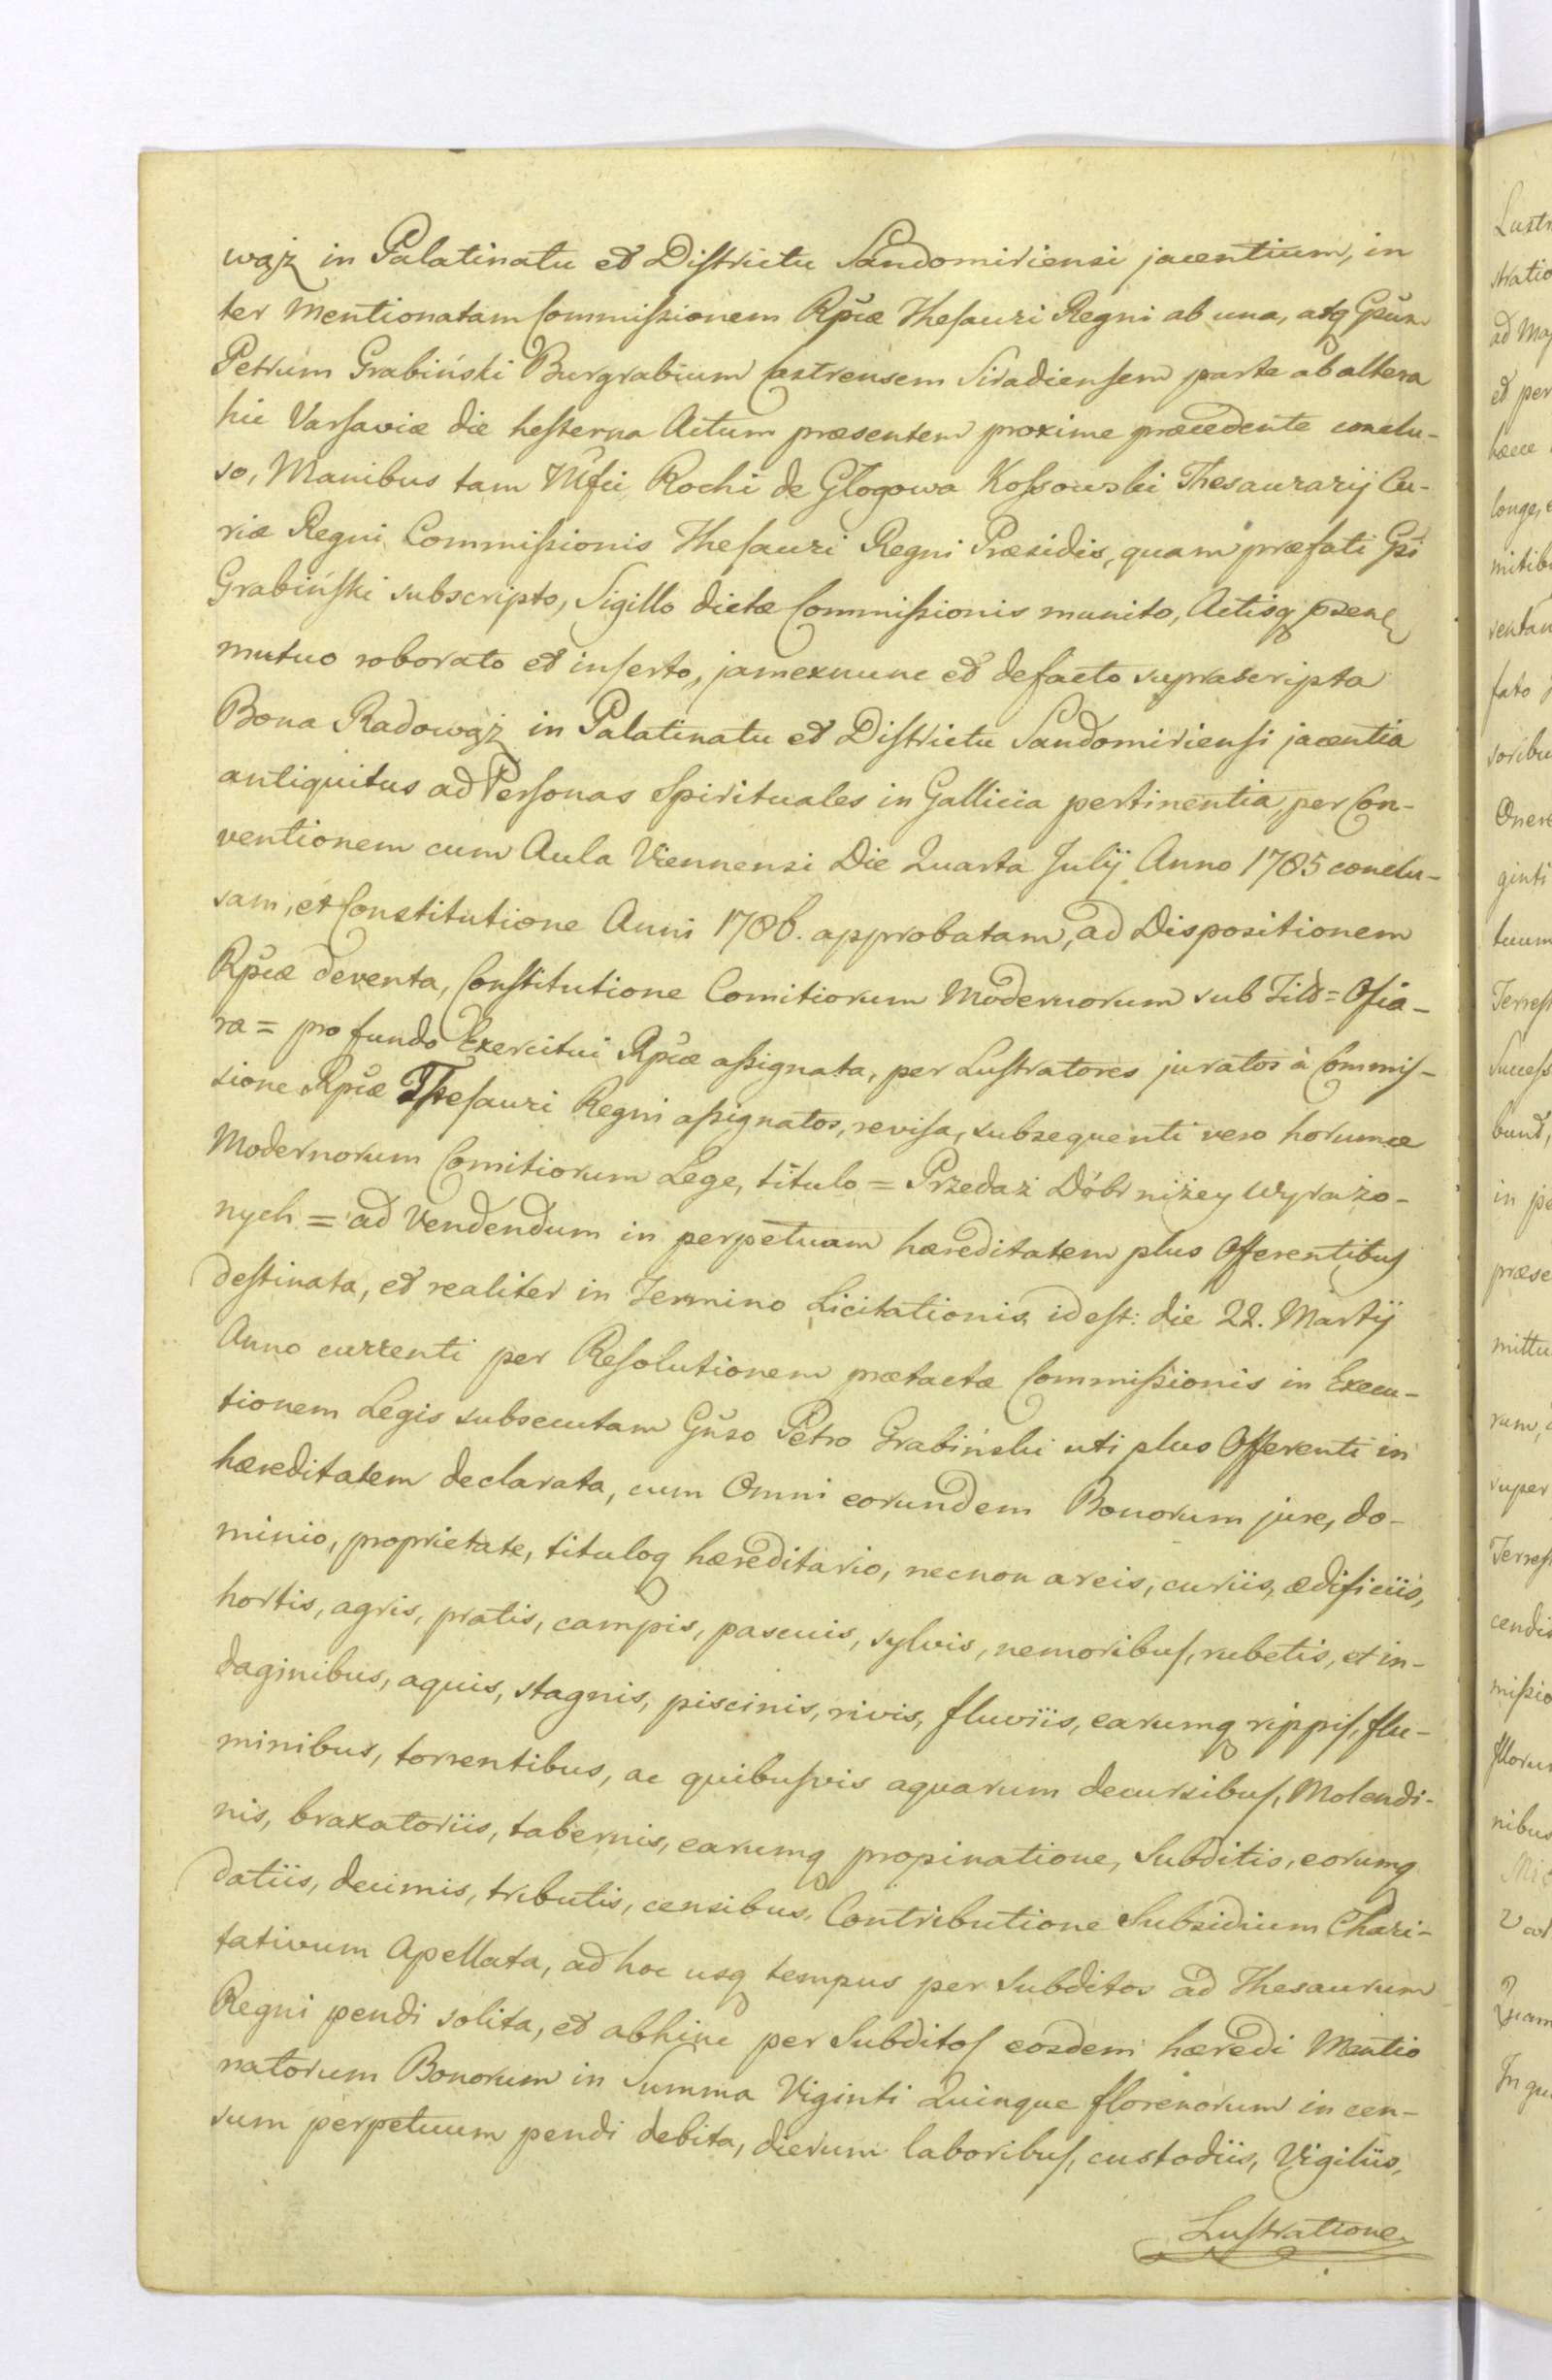 wąż in Palatinatu et Districtu Sandomiriensi jacentium, in
ter mentionatam Commissionem Rpcæ Thesauri Regni ab una, atq Gsum
Petrum Grabiński Burgrabium Castrensem Siradiensem parte ab altera
hic Varsaviæ die hesterna Actum præsentem proxime præcedente conclu-
so, Manibus tam Rochi de Głogowa Kossowski Thesaurarij Cu-
riæ Regni Commissionis Thesauri Regni Præsidis, quam præfati Gsi
Grabiński subscripto, Sigillo dictæ Commissionis munito, Actisq
mutuo roborato et inserto, jamexnunc et defacto suprascripta
Bona Radowąż in Palatinatu et Districtu Sandomiriensi jacentia
antiquitus ad Personas Spirituales in Gallicia pertinentia, per Con-
ventionem cum Aula Viennensi Die Quarta Julij Anno 1785 conclu-
sam, et Constitutione Anni 1786. approbatam, ad Dispositionem
Rpcæ deventa, Constitutione Comitiorum Modernorum sub Tito = Ofia-
ra = pro fundo Exercitui Rpcæ assignata, per Lustratores juratos à Commis-
sione Rpcæ Thesauri Regni assignatos, revisa, subsequenti vero horumce
Modernorum Comitiorum Lege, titulo = Przedaż Dóbr niżey wyrażo-
nych = ad Vendendum in perpetuam hæreditatem plus Offerentibus
destinata, et realiter in Termino Licitationis id est: die 22. Martij
Anno currenti per Resolutionem prætactæ Commissionis in Execu-
tionem Legis subsecutam Gnso Petro Grabiński uti plus Offerenti in
hæreditatem declarata, cum Omni eorundem Bonorum jure, do-
minio, proprietate, tituloq hæreditario, necnon areis, curiis, ædificiis,
hortis, agris, pratis, campis, pascuis, sylvis, nemoribus, rubetis, et in-
daginibus, aquis, stagnis, piscinis, rivis, fluviis, earumq rippis, flu-
minibus, torrentibus, ac quibusvis aquarum decursibus, Molendi-
nis, braxatoriis, tabernis, earumq propinatione, Subditis, eorumq
datiis, decimis, tributis, censibus, Contributione Subsidium Chari-
tativum Apellata, ad hoc usq tempus per Subditos ad Thesaurum
Regni pendi solita, et abhinc per Subditos eosdem hæredi Mentio
natorum Bonorum in Summa Viginti Quinque florenorum in cen-
sum perpetuum pendi debita, dierum laboribus, custodiis, Vigiliis,
Lustratione